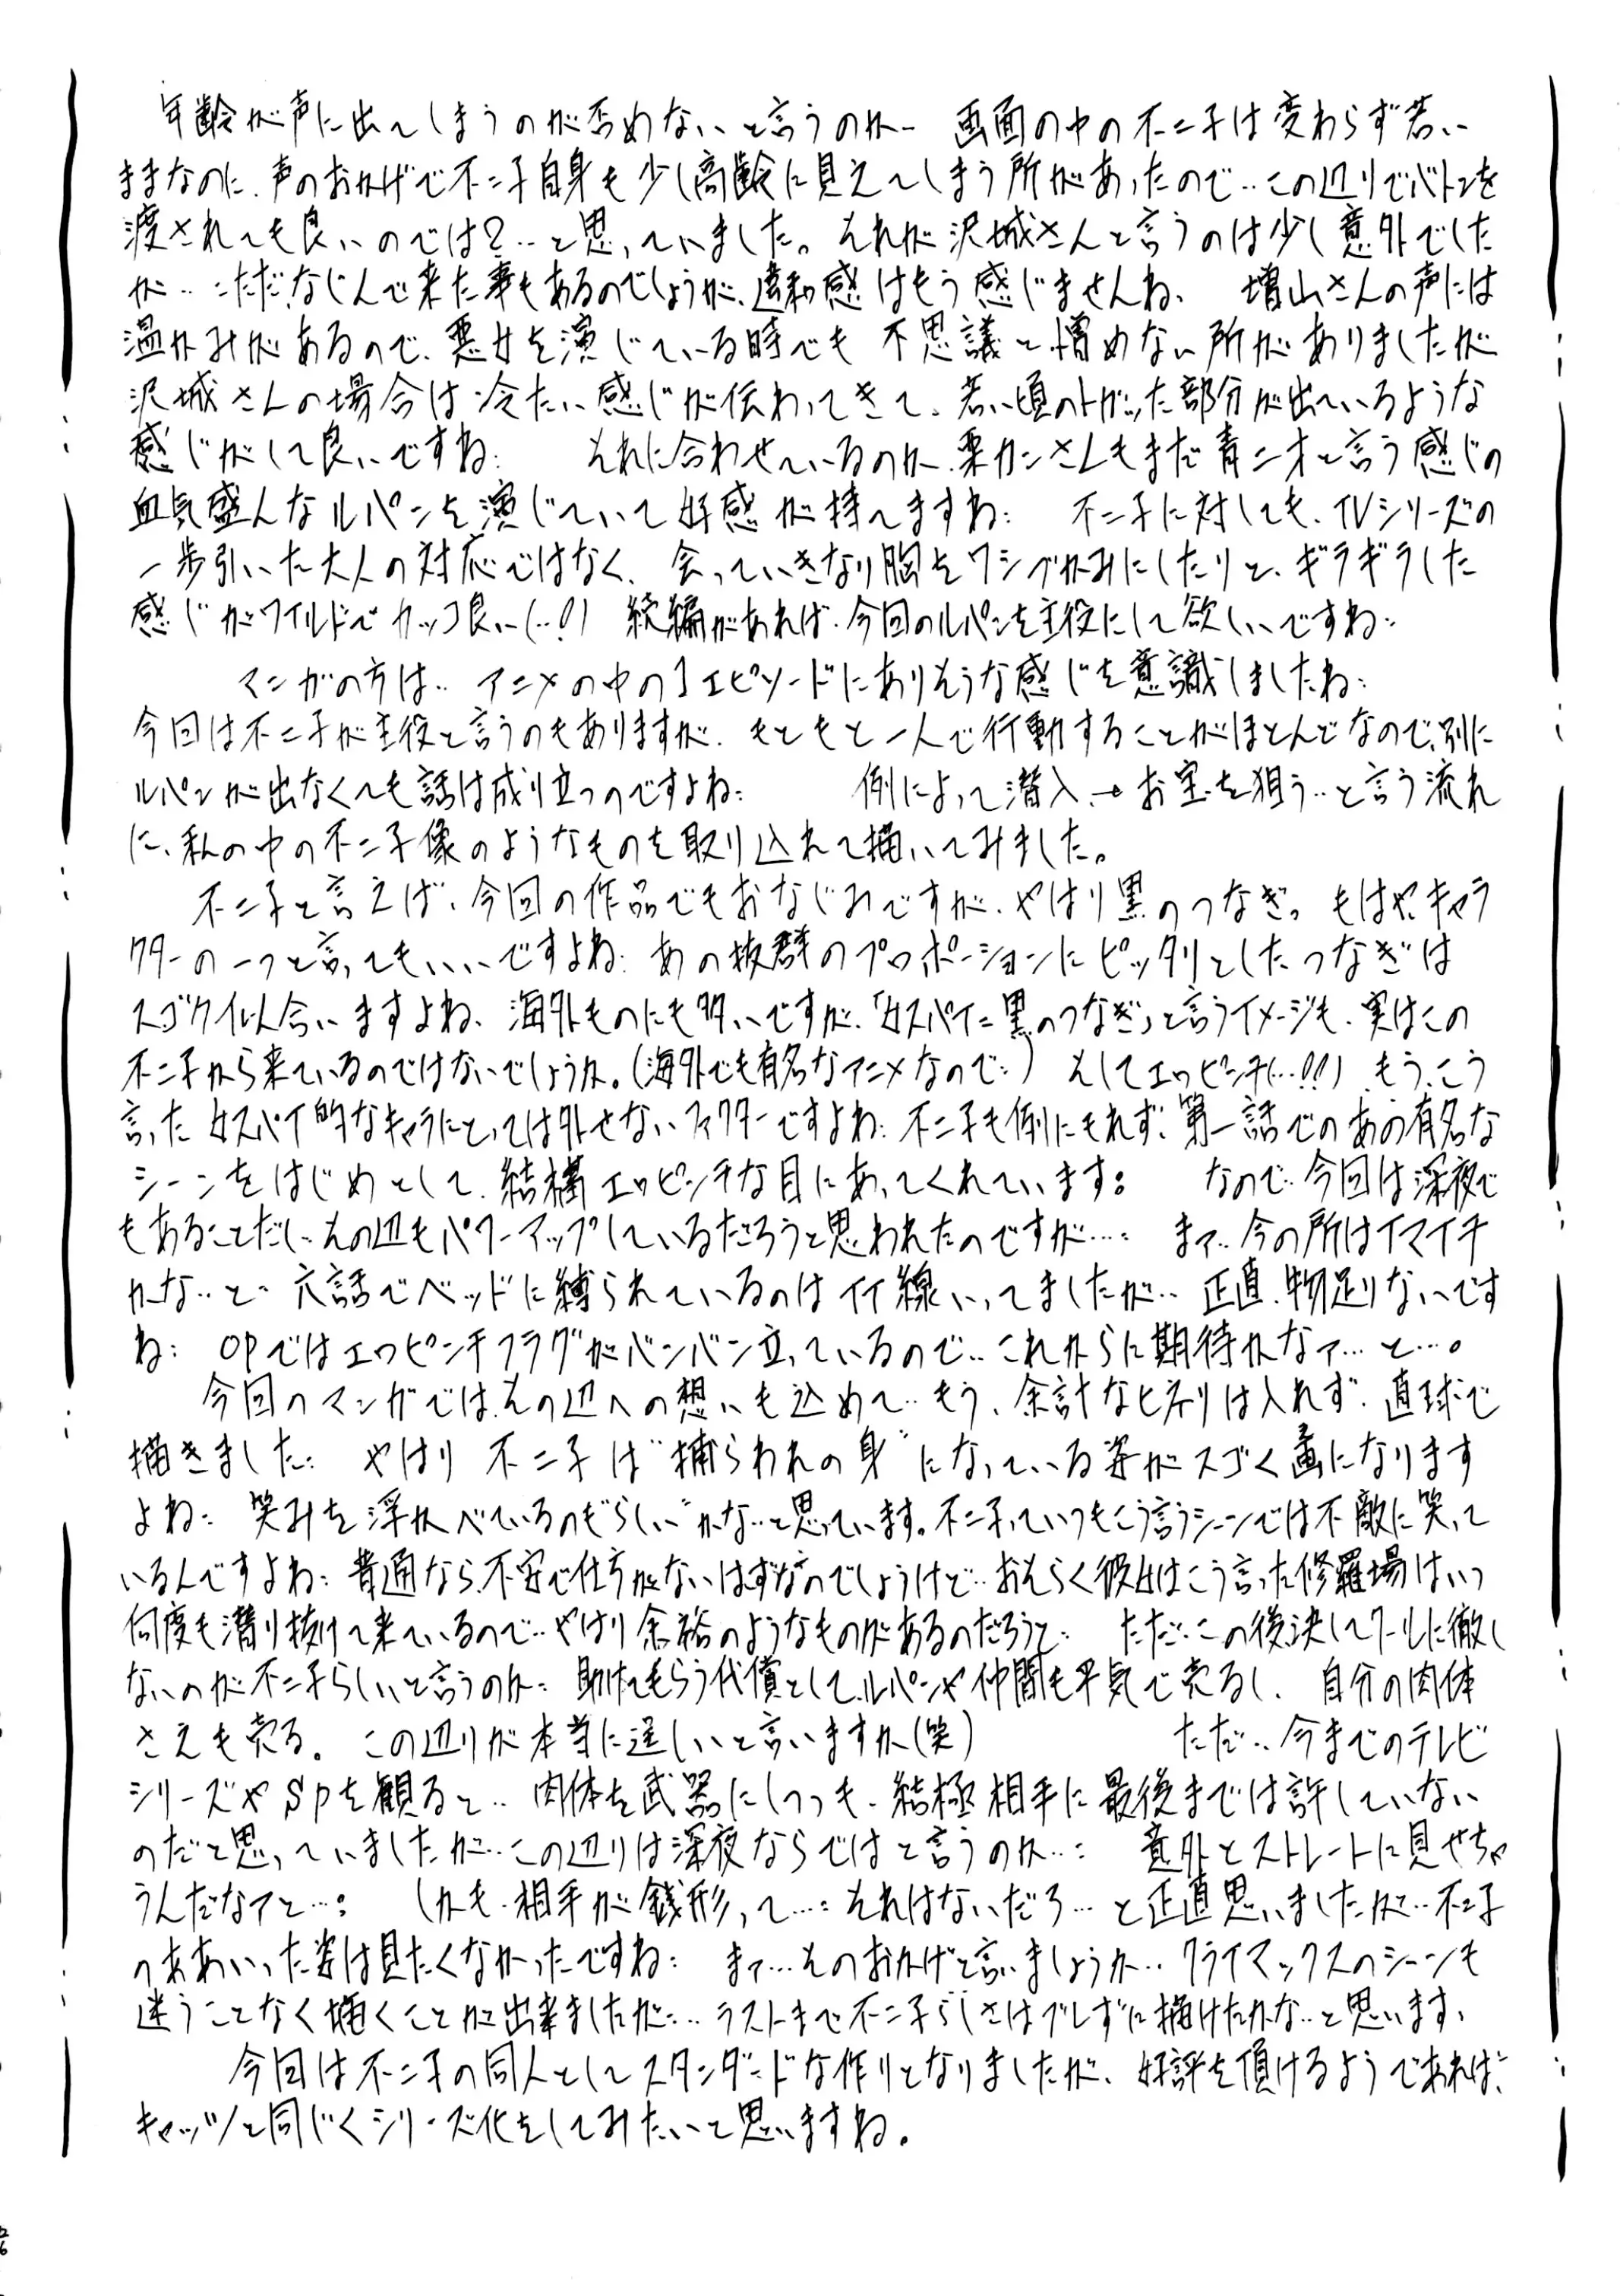 年齢が声に出てしまうのが否めないと言うのか… 画面の中の不二子は変わらず若い
ままなのに、声のおかげで不二子自身も少し高齢に見えてしまう所があったので‥この辺りでバトンを
渡されても良いのでは？‥と思っていました。それが沢城さんと言うのは少し意外でした
が‥ただ、なじんで来た事もあるのでしょうが、違和感はもう感じませんね、 増山さんの声には
温かみがあるので、悪女を演じている時でも 不思議と憎めない所がありましたが
沢城さんの場合は冷たい感じが伝わってきて、若い頃のトガった部分が出ているような
感じがして良いですね‥ それに合わせているのか、栗カンさんもまだ青二才と言う感じの
血気盛んなルパンを演じていて好感が持てますね‥ 不二子に対しても、TVシリーズの
一歩引いた大人の対応ではなく、会っていきなり胸をワシヅカみにしたりと、ギラギラした
感じがワイルドでカッコ良い(‥!) 続編があれば、今回のルパンを主役にして欲しいですね‥
マンガの方は‥ アニメの中の1エピソードにありそうな感じを意識しましたね‥
今回は不二子が主役と言うのもありますが、もともと一人で行動することがほとんどなので、別に
ルパンが出なくても話は成り立つのですよね‥ 例によって潜入→お宝を狙う‥と言う流れ
に、私の中の不二子像のようなものを取り込れて描いてみました。
不二子と言えば、今回の作品でもおなじみですが、やはり黒のつなぎっ もはや、キャラ
クターの一つと言ってもいいですよね‥あの抜群のプロポーションにピッタリとしたつなぎは
スゴク似合いますよね、海外ものにも多いですが、「女スパイ=黒のつなぎ」と言うイメージも、実はこの
不二子から来ているのではないでしょうか。(海外でも有名なアニメなので‥) そしてエロピンチ(…!!) もう、こう
言った女スパイ的なキャラにとっては外せないファクターですよね‥不二子も例にもれず、第一話でのあの有名な
シーンをはじめとして、結構エロピンチな目にあってくれています‥ なので‥今回は深夜で
もあることだし‥その辺もパワーアップしているだろうと思われたのですが…‥ まァ‥今の所はイマイチ
かな‥と‥ 六話でベッドに縛られているのはイイ線いってましたが‥ 正直、物足りないです
ね‥ OPではエロピンチフラグがバンバン立っているので‥これからに期待かなァ…と…。
今回のマンガでは、その辺への想いも込めて‥もう、余計なヒネリは入れず、直球で
描きました‥ やはり 不二子は“捕らわれの身”になっている姿がスゴく画になります
よね‥ 笑みを浮かべているのも“らしい”かな‥と思っています。不二子っていつもこう言うシーンでは不敵に笑って
いるんですよね‥普通なら、不安で仕方がないはずなのでしょうけど‥おそらく彼女はこう言った修羅場はいつ
何度も潜り抜けて来ているので‥やはり余裕のようなものがあるのだろうと‥ ただ‥この後決してクールに徹し
ないのが不二子らしいと言うのか‥ 助けてもらう代償として、ルパンや仲間も平気で売るし、自分の肉体
さえも売る。この辺りが本当に逞しいと言いますか(笑) ただ‥今までのテレビ
シリーズやSPを観ると‥ 肉体を武器にしつつも、結極相手に最後までは許していない
のだと思っていましたが‥この辺りは深夜ならではと言うのか…‥ 意外とストレートに見せちゃ
うんだなァと…‥ しかも、相手が銭形って…‥それはないだろ…と正直思いましたが‥不二子
のああいった姿は見たくなかったですね‥ まァ…そのおかげと言いましょうか‥クライマックスのシーンも
迷うことなく描くことが出来ましたが…‥ラストまで不二子らしさはブレずに描けたかな‥と思います、
今回は不二子の同人としてスタンダードな作りとなりましたが、好評を頂けるようであれば、
キャッツと同じくシリーズ化をしてみたいと思いますね。
26